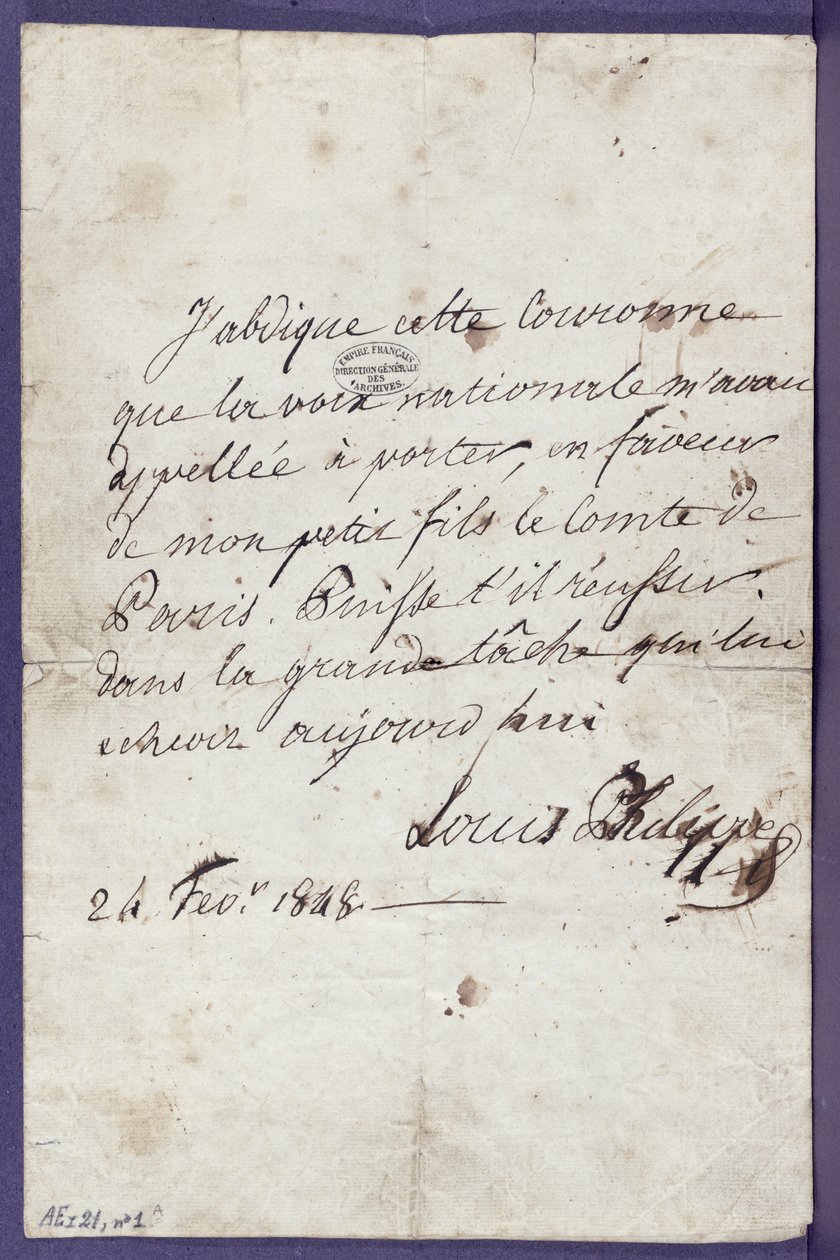 J'abdique cette Couronne
EMPIRE FRANÇAIS
DIRECTION GÉNÉRALE
DES
ARCHIVES.
que la voix nationale m'avait
appellée à porter, en faveur
de mon petit fils le Comte de
Paris. Puisse t'il réussir
dans la grande tâche qui lui
echoit aujourd hui
Louis Philippe
24 Fevr 1848
AE I 21, n° 1 A